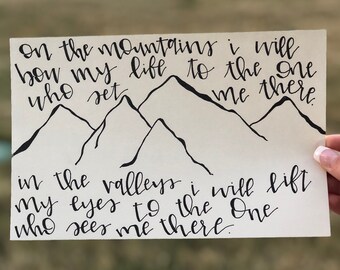 on the mountains i will
bow my life to the one
who set me there.
in the valleys i will lift
my eyes to the One
who sees me there.